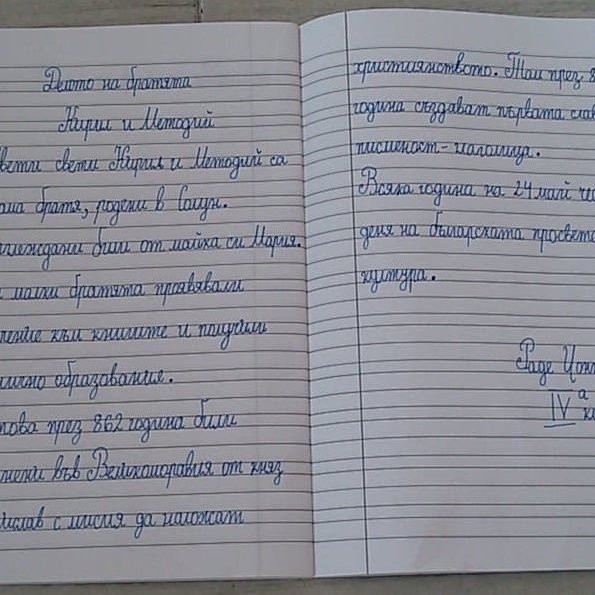 Делото на братята
Кирил и Методий
свети Кирил и Методий са
братя, родени в Солун.
били от майка си Мария.
малки братята проявявали
към книгите и получили
образования.
през 862 година били
във Великоморавия от княз
с мисия да наложат
християнството. Там през 8
година създават първата слав
писменост - глаголица.
Всяка година на 24 май
деня на българската просвета
култура.
Раде
IV а